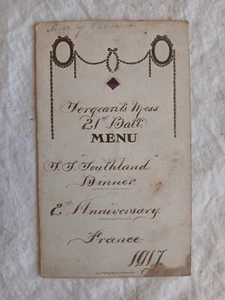 Sergeants Mess
21st Batt.
MENU
S.S. "Southland"
Dinner
2nd Anniversary
France
1917